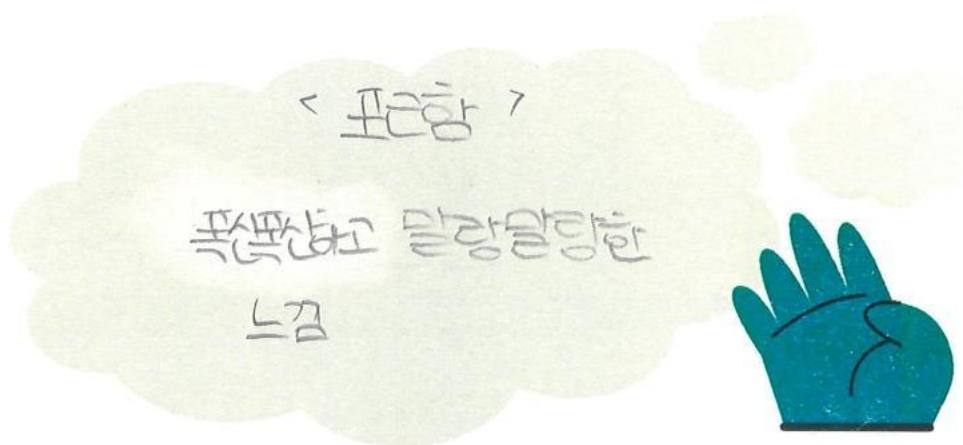 < 포근함 >
폭신폭신하고 말랑말랑한
느낌